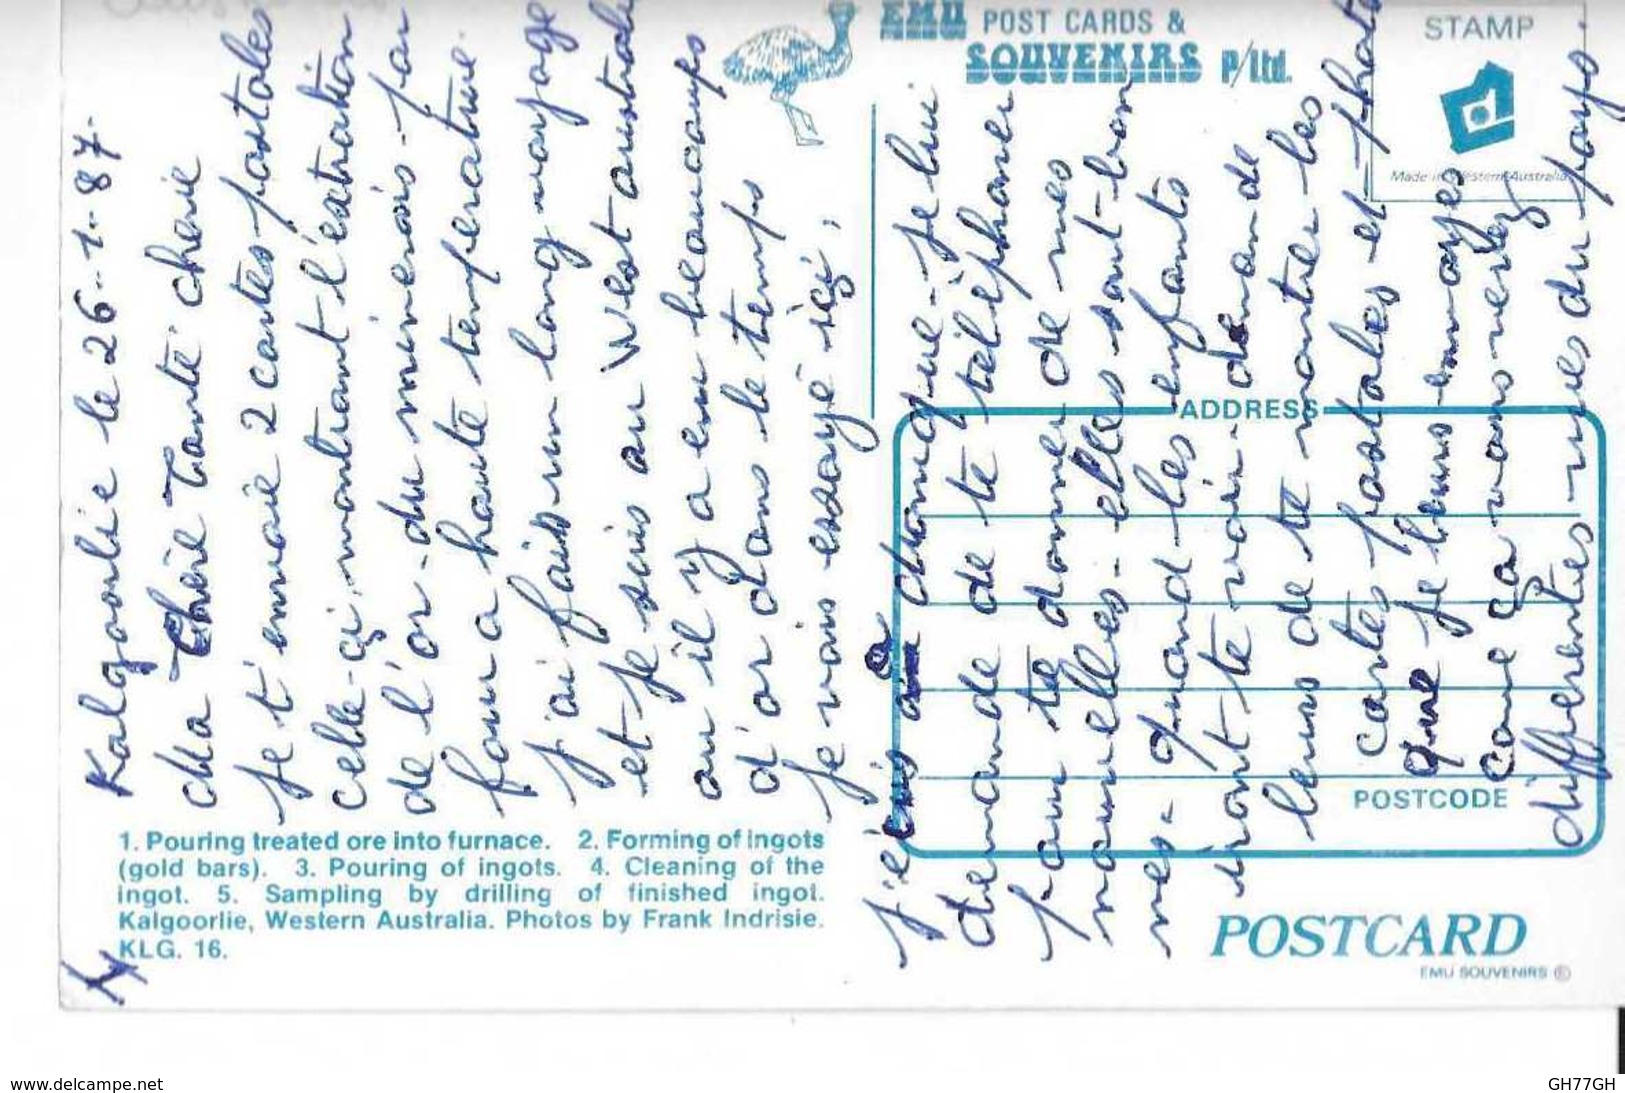 EMU POST CARDS &
SOUVENIRS P/Ltd.
STAMP
Made in Western Australia
Kalgoorlie le 26-1-87-
Ma chère Tante cherie
je t'envoie 2 cartes-postales
celle-çi, montrant l'extraction
de l'or-du minerois-par
four a haute temperature.
j'ai fais un long voyage
et-je suis au West austral
ou il y a eu beaucoups
d'or dans le temps
je vais essayé içi,
j'écris a Monique-je lui
demande de te téléphoner
pour te donner de mes
nouvelles-elles sont-bon
nes- quand les enfants
iront-te voir. demande
leurs de te montrer les
cartes postales et-photo
que je leurs envoyes
come ça vous verez
differentes vues du pays.
ADDRESS
POSTCODE
1. Pouring treated ore into furnace. 2. Forming of ingots
(gold bars). 3. Pouring of ingots. 4. Cleaning of the
ingot. 5. Sampling by drilling of finished ingot.
Kalgoorlie, Western Australia. Photos by Frank Indrisie.
KLG. 16.
POSTCARD
EMU SOUVENIRS ©
www.delcampe.net
GH77GH